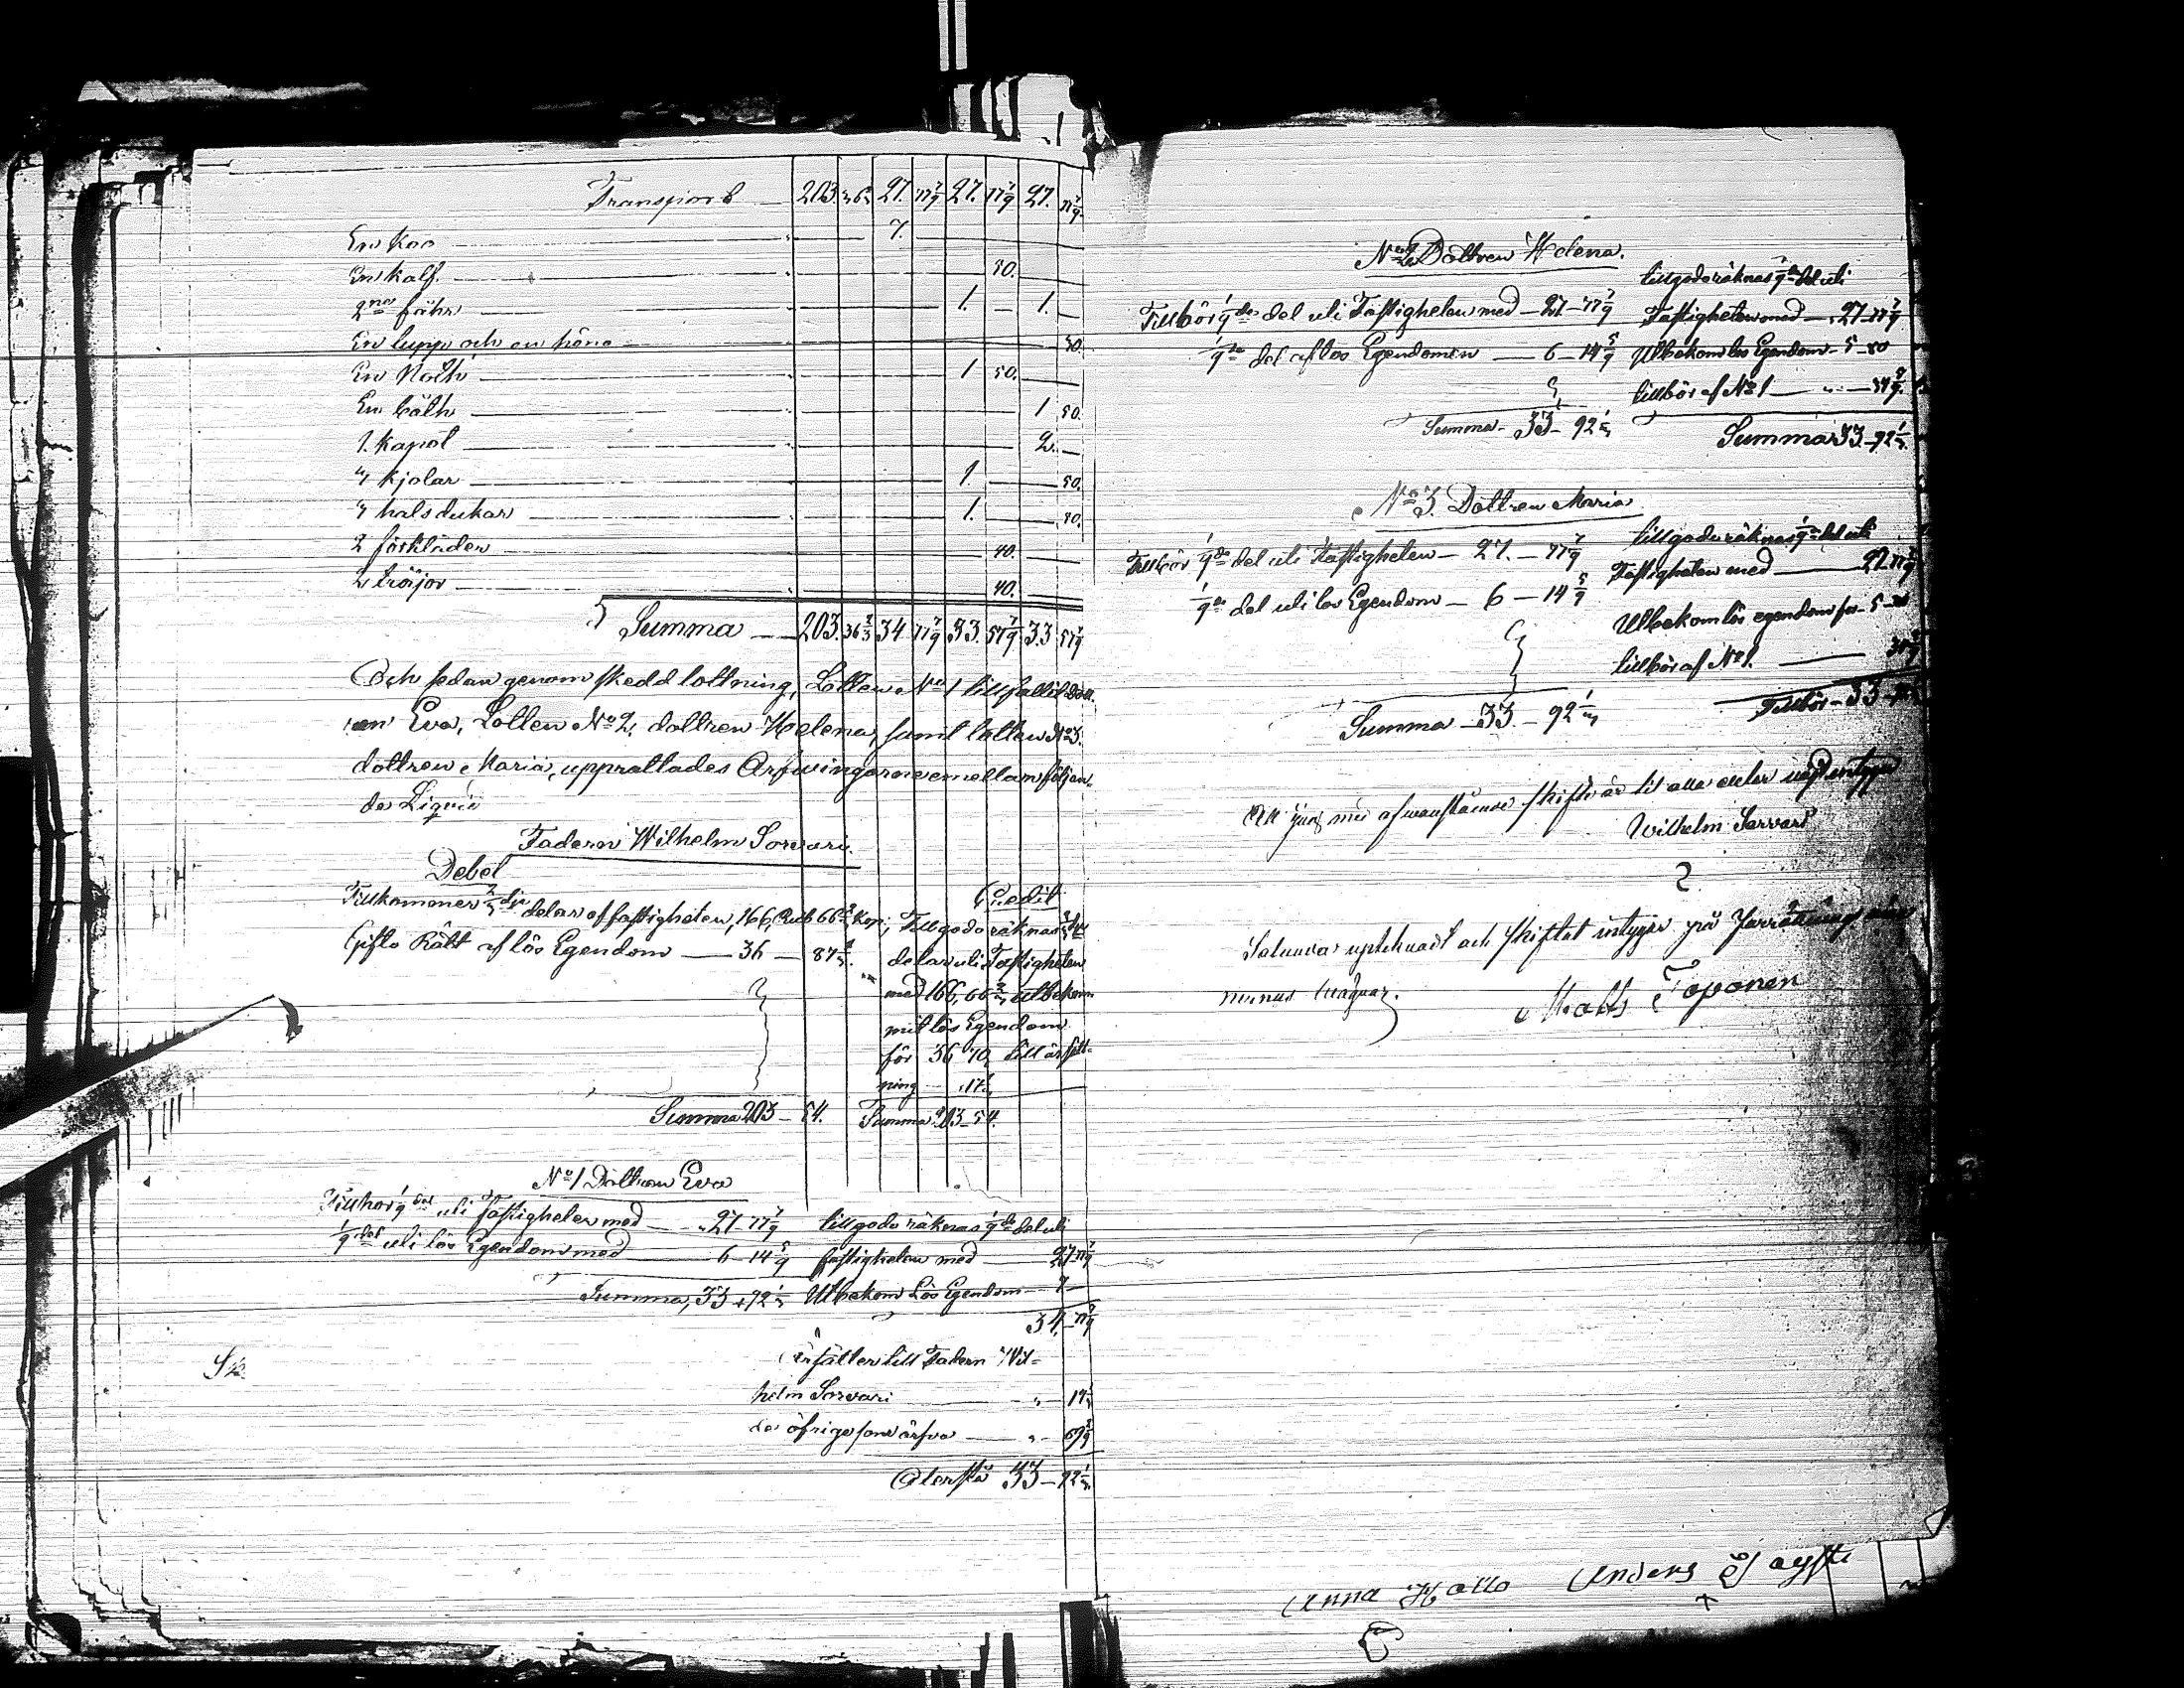 Transport 203. 36 27. 77 7/9 27. 77 7/9 27. 77 7/9
En Koo 7.
En Kalf. 50.
2ne fåhr 1. 1.
En tupp och en höna 30.
En Noth 1 50.
En båth 1 50.
1. Kapot 2.
4 kjolar 1 50.
4 halsdukar 1. 30.
2 förkläder 40.
2 tröijor 40.
Summa 203. 36 2/3 34 77 7/9 33. 57 7/9 33 57 7/9
Och sedan genom skedd lottning, Lotten No 1 tillfallit dott-
ren Eva, Lotten No 2, dottren Helena, samt lotten No 3.
dottren Maria, upprättades Arfvingarne emellan följan-
de Liquid
Fadern Wilhelm Sorvari.
Debet
Tillkommer 2/3 dja delar af fastigheten, 166, Rub 66 2/3 Kop,
Gifto Rätt af lös Egendom 36 87 1/3.
Summa 203 - 54.
Credit
Tillgodo räknas 2/3
delar uti Fastigheten
med 166, 66 2/3 utbekom-
mit lös Egendom
för 36 70, till ärsätt-
ning 17 1/3
Summa 203 - 54.
No 1 Dottren Eva
Tillhör 1/9 del uti fastigheten med 27 77 7/9
1/9 del uti lös Egendom med 6 - 14 5/9
Summa, 33 92 1/3
tillgodo räknas 1/9 de del uti
fastigheten med 27 77 7/9
Utbekom Lös Egendom 7
34, 77 7/9
Ärsätter till Fadern Wil-
helm Sorvari 17 1/3
de öfriga som ärfva
Återstå 33 - 92 1/3
No 2 Dottren Helena.
Tillhör 1/9 de del uti Fastigheten med 27 - 77 7/9
1/9 de del af lös Egendomen 6 - 14 5/9
Summa - 33 - 92 1/3
tillgodo räknas 1/9 de del uti
Fastigheten med 27 - 77 7/9
Utbekom lös Egendom - 5 - 80
tillhör af No 1 34 5/9
Summa 33 - 92 1/3
No 3. Dottren Maria
Tillhör 1/9 de del uti Fastigheten 27. - 77 7/9
1/9 de del uti lös Egendom 6 - 14 5/9
Summa 33 - 92 1/3
tillgodo räknas 1/9 de del uti
Fastigheten med 27 77 7/9
Utbekom lös egendom för 5 - 80
tillhör af No 1. 34 5/9
Tillhör - 33
Att med skifte är
Wilhelm Sorvari
och skiftat intygar på Förrättnings
vägnar.
Matts Toponen
Anna Anders